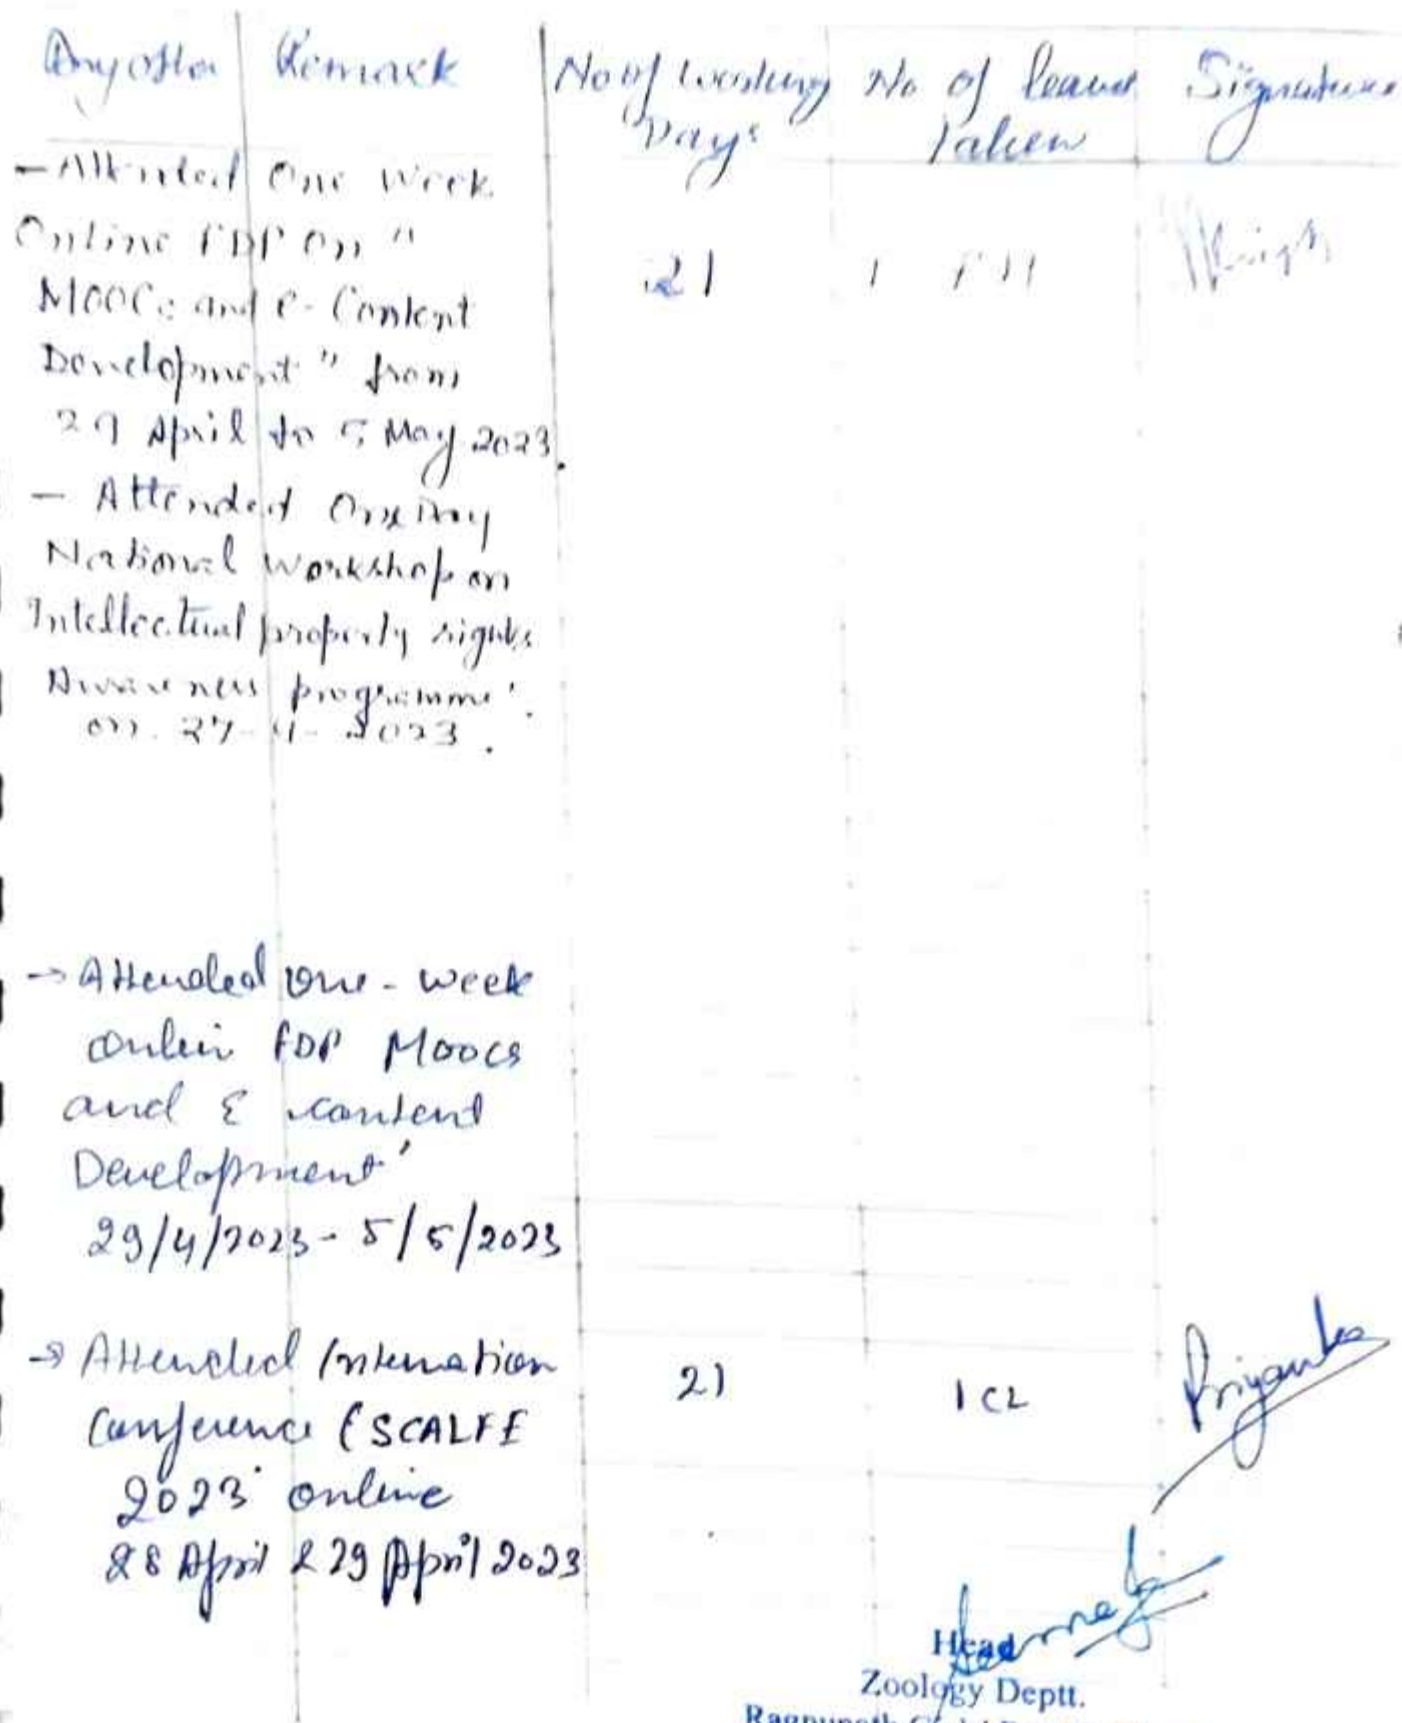 Any other Remark
No of working Days
No of leave Taken
Signature
- Attended One Week
Online FDP on "
MOOCs and e-Content
Development" from
29 April to 5 May 2023.
21
1
- Attended One Day
National Workshop on
Intellectual property rights
Awareness programme'.
on 27-4-2023.
→ Attended One-week
FDP Moocs
and E content
Development'
29/4/2023 - 5/5/2023
→ Attended Internation
Conference (SCALFE
2023' online
28 April & 29 April 2023
21
1 CL
Priyanka
Head
Zoology Deptt.